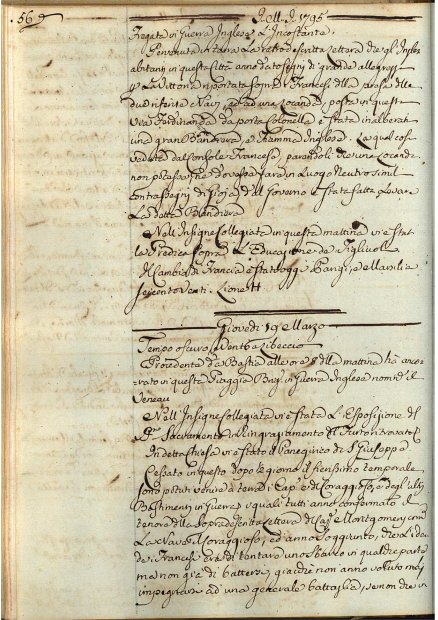 56
1795
Fregata in Guerra Inglese L'Incostante.
Pervenuta in tara La retro descritta Lettera di gl'Ingle
abitanti in questa Città anno dato segni di grande allegrezz
La Vittoria riportata sopra i Francesi della presa delle
due riferite Navi, ad una Locanda, posta in quest
Via Ferdinanda da porta Colonella è stata inalberata
una gran Bandiera, e Fiamma Inglese. La qual cosa
veduta dal Console Francese, parendoli che una Locanda
non potesse, ne dovesse fare in Luogo Neutro simil
contrassegni di gioja, dal Governo è stata fatta Levare
La detta Bandiera
Nell'Insigne Collegiata in questa mattina vi è stat
la Predica sopra L'Educazione de Figlivoli
Il Cambio di Francia è stato oggi Parigi, e Marsilia
seicento venti. Lione
Giovedì 19 e Marzo
Tempo oscuro, e Vento a Libeccio
Procedente da Bastia alle ore 8 della mattina ha anco
rato in questa Spiaggia Brig: in Guerra Inglese nom:to il
Veneau
Nell'Insigne Collegiata vi è stata L'Esposizione del
SS: Sacramento in Ringraziamento
In detta Chiesa vi è stato il Panegirico di S: Giuseppe
Cessato in questo dopo giorno il fierissimo temporale
sono potuti venire a terra i Cap: del Coraggioso, e degl'altri
Bastimenti in Guerra, i quali tutti anno confermato il
tenore della sopradescritta Lettera di Cap: Montgomery
La Nave il Coraggioso, ed anno soggiunto, che L'idea
de Francesi era di tentare uno sbarco in qualche parte
ma non già di battersi, giacche non anno voluto mai
impegnarsi ad una generale battaglia, se non che in